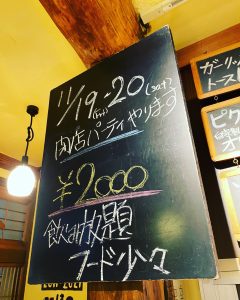 11/19・20
(Fri) (sat)
閉店パーティやります
¥2000
飲み放題
フード少々
ガーリッ
トース
ピク